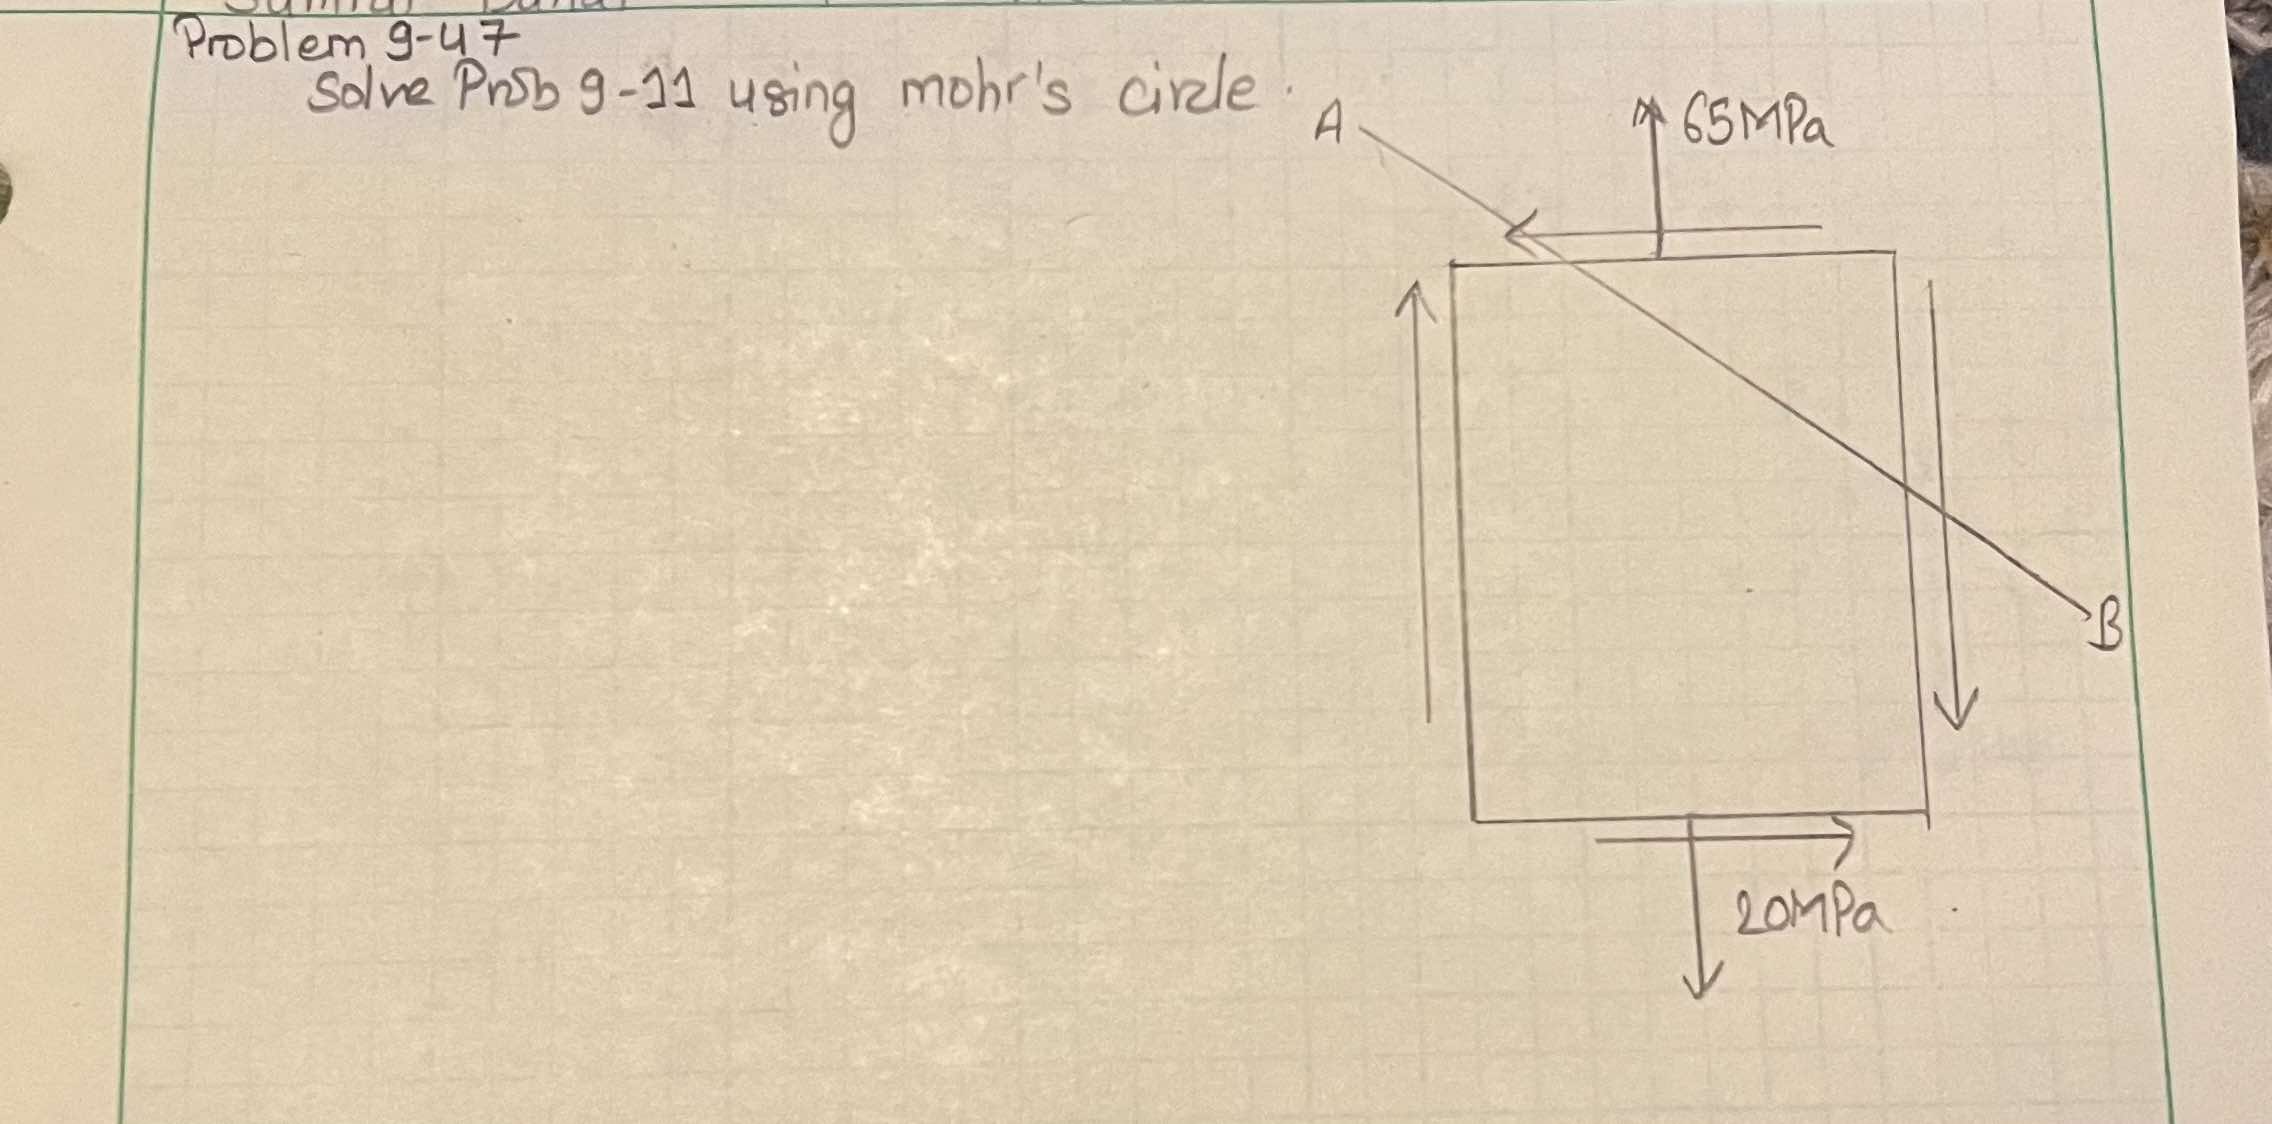 Problem 9-47
Solve Prob 9-11 using mohr's circle.
A
65MPa
B
20MPa